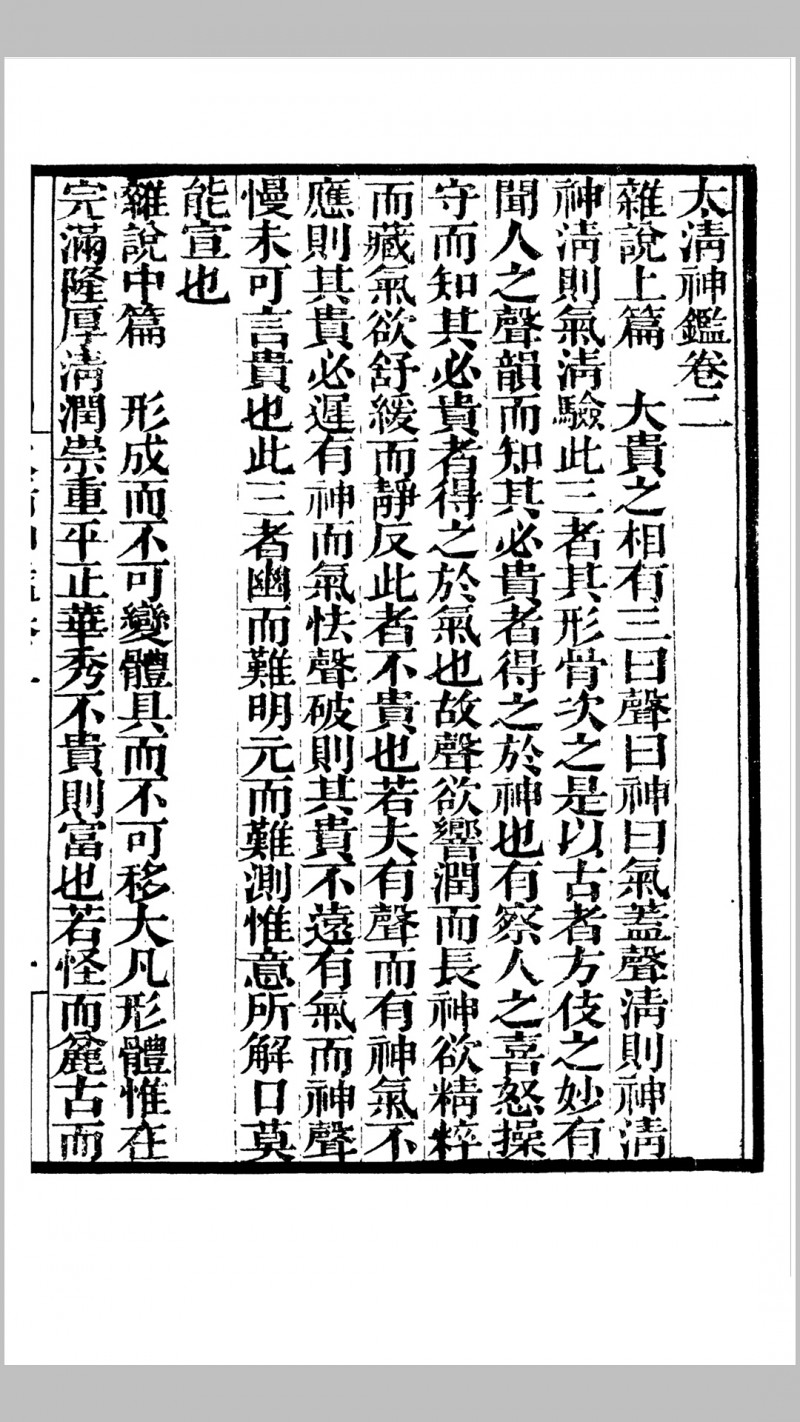 太淸神鑑卷二
雜說上篇　大貴之相有三曰聲曰神曰氣蓋聲淸則神淸
神淸則氣淸驗此三者其形骨次之是以古者方伎之妙有
聞人之聲韻而知其必貴者得之於神也有察人之喜怒操
守而知其必貴者得之於氣也故聲欲響潤而長神欲精粹
而藏氣欲舒緩而靜反此者不貴也若夫有聲而有神氣不
應則其貴必遲有神而氣怯聲破則其貴不遠有氣而神聲
慢未可言貴也此三者幽而難明元而難測惟意所解口莫
能宣也
雜說中篇　形成而不可變體具而不可移大凡形體惟在
完滿隆厚淸潤崇重平正華秀不貴則富也若怪而麄古而